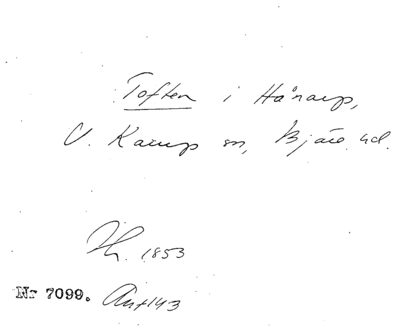 Toften i Hånarp,
V. Karup sn, Bjäre hd.
1853
Nr 7099.